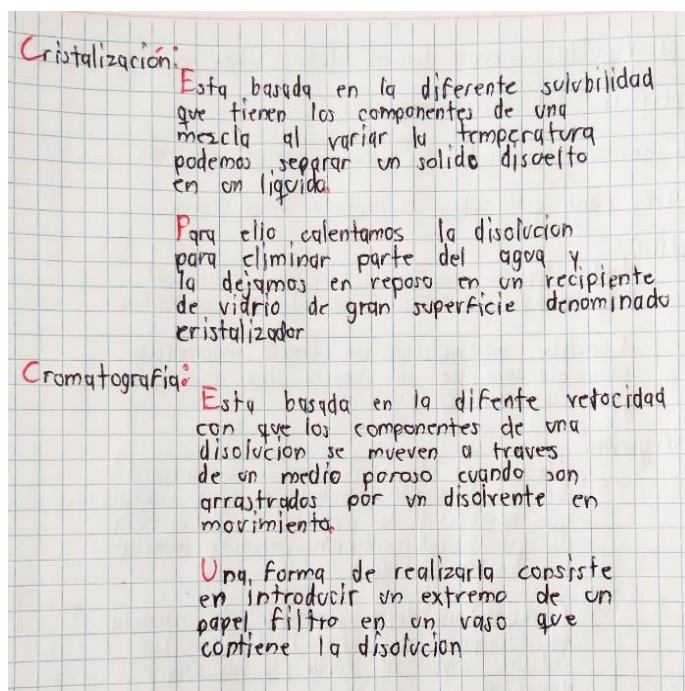 Cristalización:
Esta basada en la diferente solubilidad
que tienen los componentes de una
mezcla al variar la temperatura
podemos separar un solido disuelto
en un liquido.
Para ello, calentamos la disolucion
para eliminar parte del agua y
la dejamos en reposo en un recipiente
de vidrio de gran superficie denominado
cristalizador
Cromatografia:
Esta basada en la difente velocidad
con que los componentes de una
disolucion se mueven a traves
de un medio poroso cuando son
arrastrados por un disolvente en
movimiento.
Una, forma de realizarla consiste
en introducir un extremo de un
papel filtro en un vaso que
contiene la disolucion